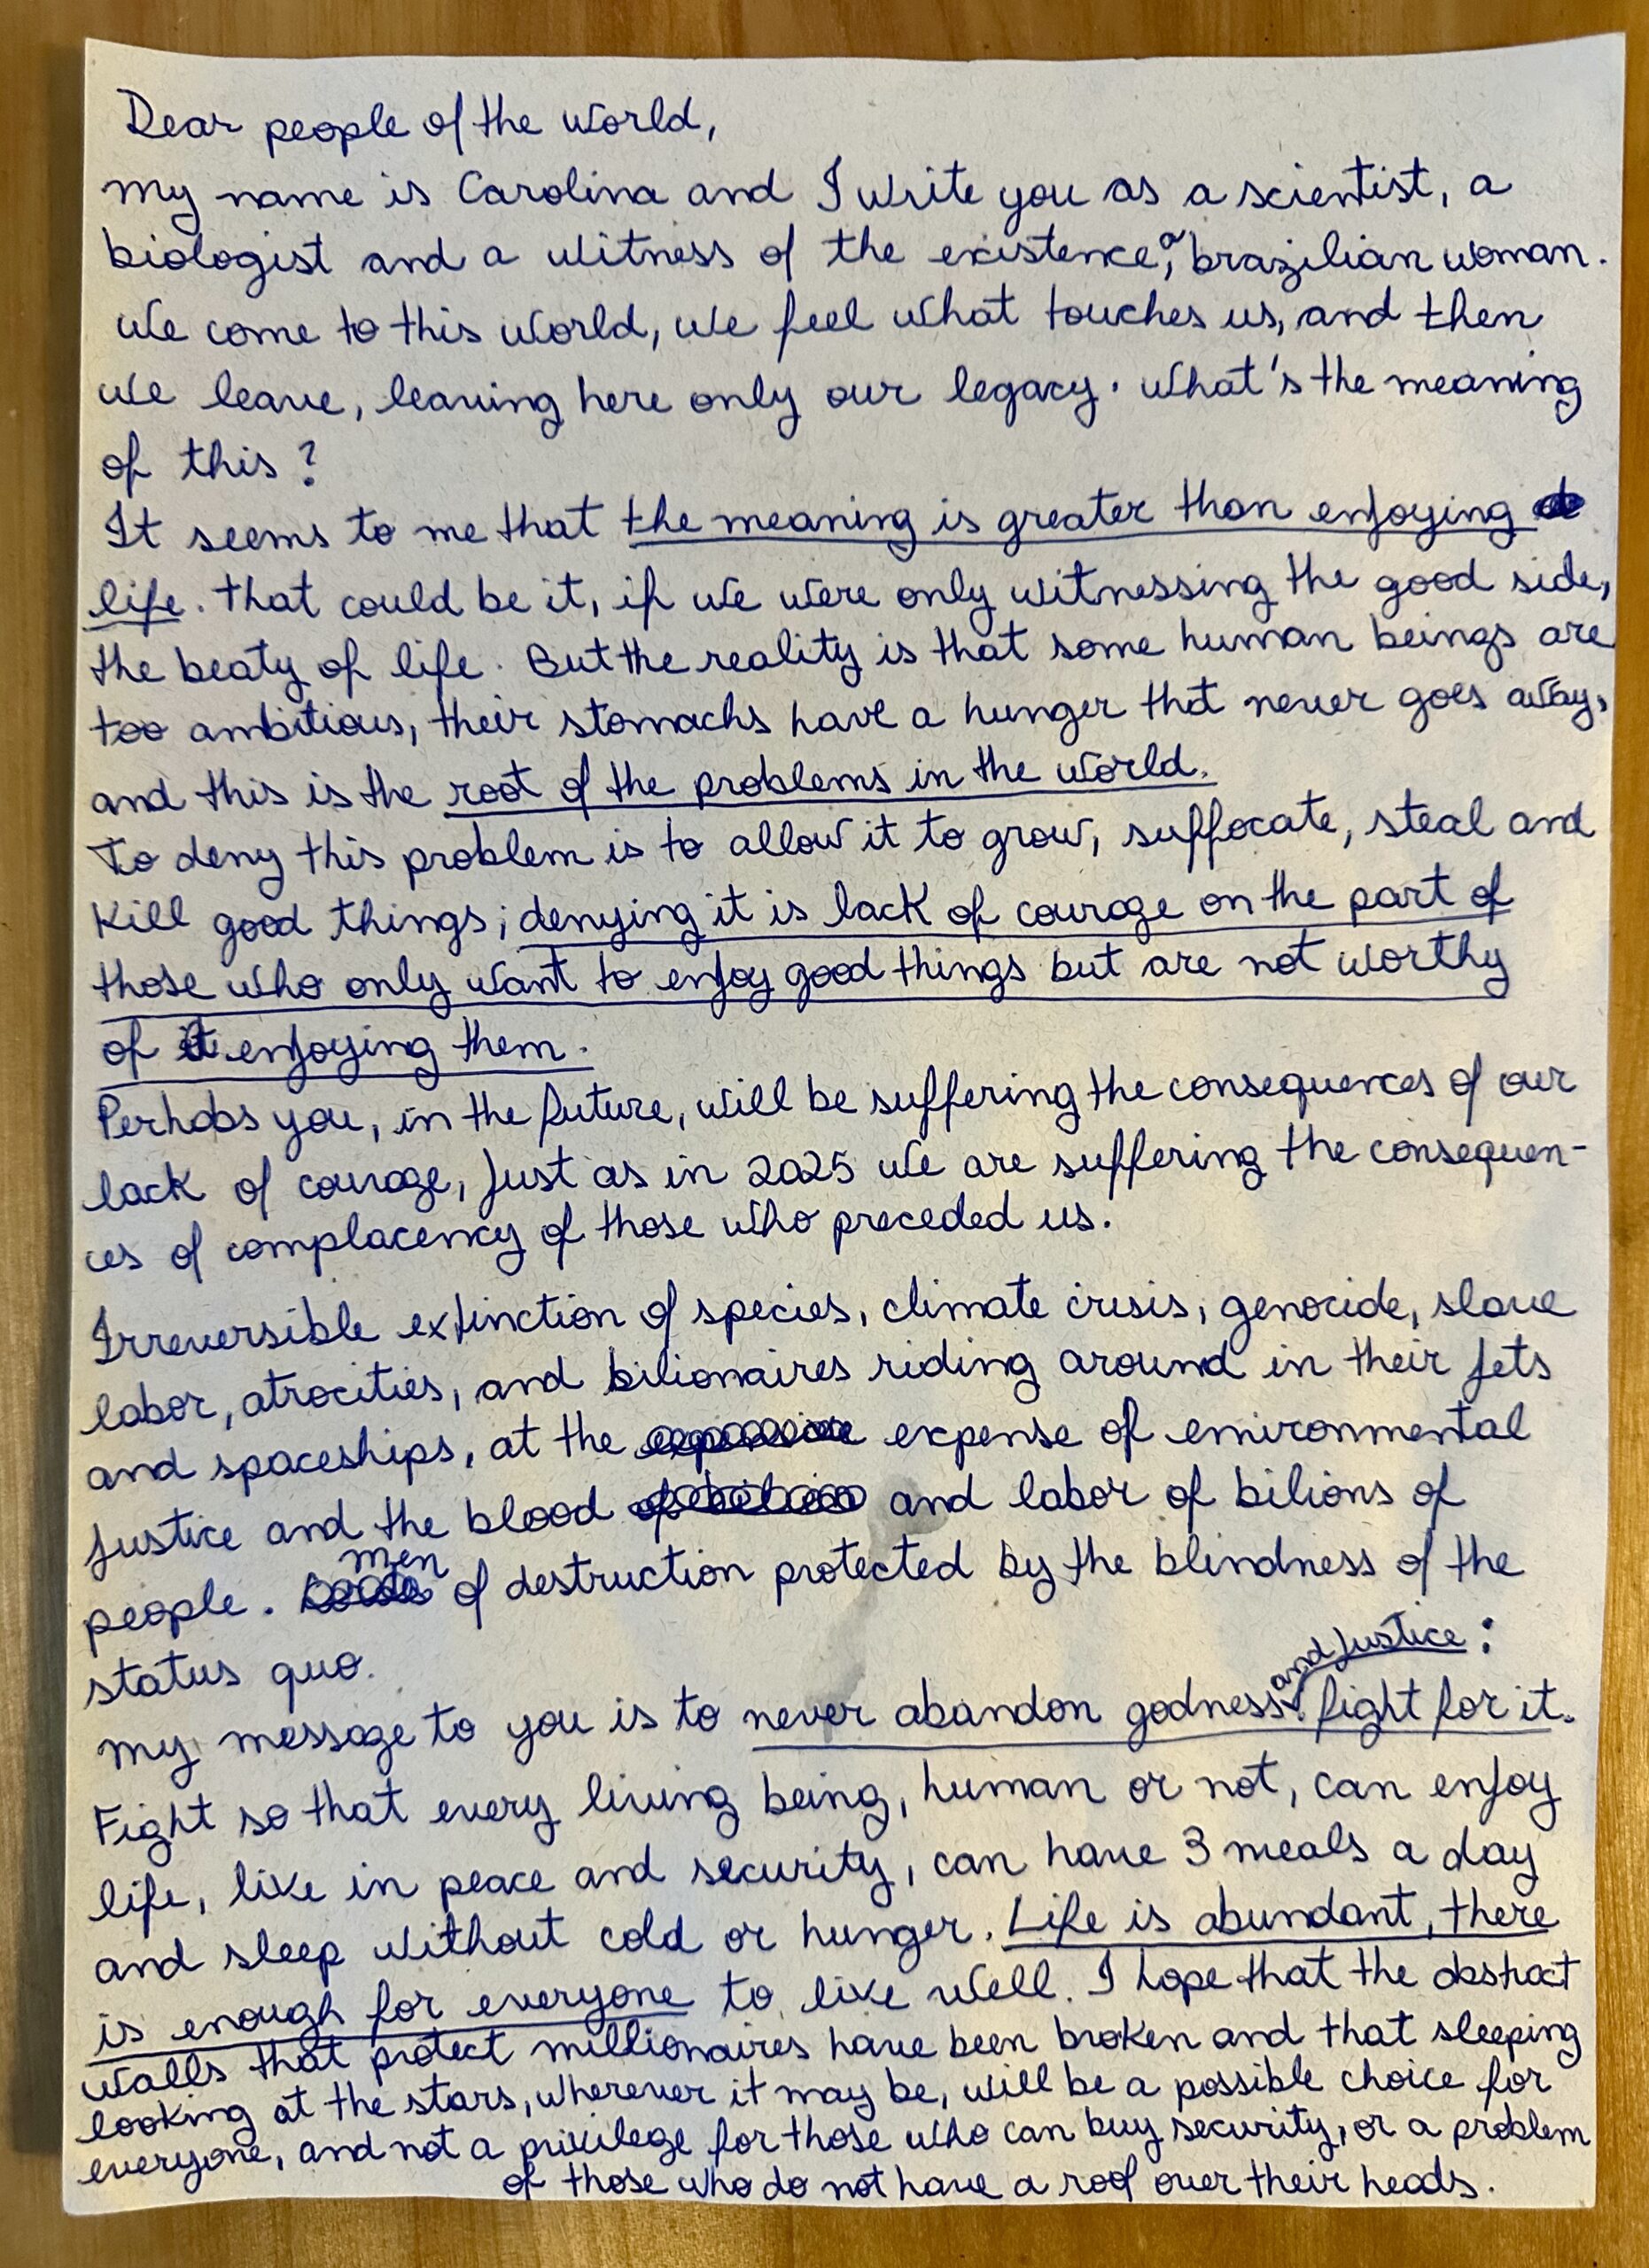 Dear people of the world,
my name is Carolina and I write you as a scientist, a
biologist and a witness of the existence, a brazilian woman.
We come to this world, we feel what touches us, and then
we leave, leaving here only our legacy. What's the meaning
of this?
It seems to me that the meaning is greater than enjoying
life. That could be it, if we were only witnessing the good side,
the beaty of life. But the reality is that some human beings are
too ambitious, their stomachs have a hunger that never goes away,
and this is the root of the problems in the world.
To deny this problem is to allow it to grow, suffocate, steal and
kill good things; denying it is lack of courage on the part of
those who only want to enjoy good things but are not worthy
of enjoying them.
Perhabs you, in the future, will be suffering the consequences of our
lack of courage, just as in 2025 we are suffering the consequen-
ces of complacency of those who preceded us.
Irreversible extinction of species, climate crisis, genocide, slave
labor, atrocities, and bilionaires riding around in their jets
and spaceships, at the expense of environmental
justice and the blood and labor of bilions of
people. men of destruction protected by the blindness of the
status quo.
my message to you is to never abandon godness and justice: fight for it.
Fight so that every living being, human or not, can enjoy
life, like in peace and security, can have 3 meals a day
and sleep without cold or hunger. Life is abundant, there
is enough for everyone to like well. I hope that the abstract
walls that protect millionaires have been broken and that sleeping
looking at the stars, wherever it may be, will be a possible choice for
everyone, and not a privilege for those who can buy security, or a problem
of those who do not have a roof over their heads.